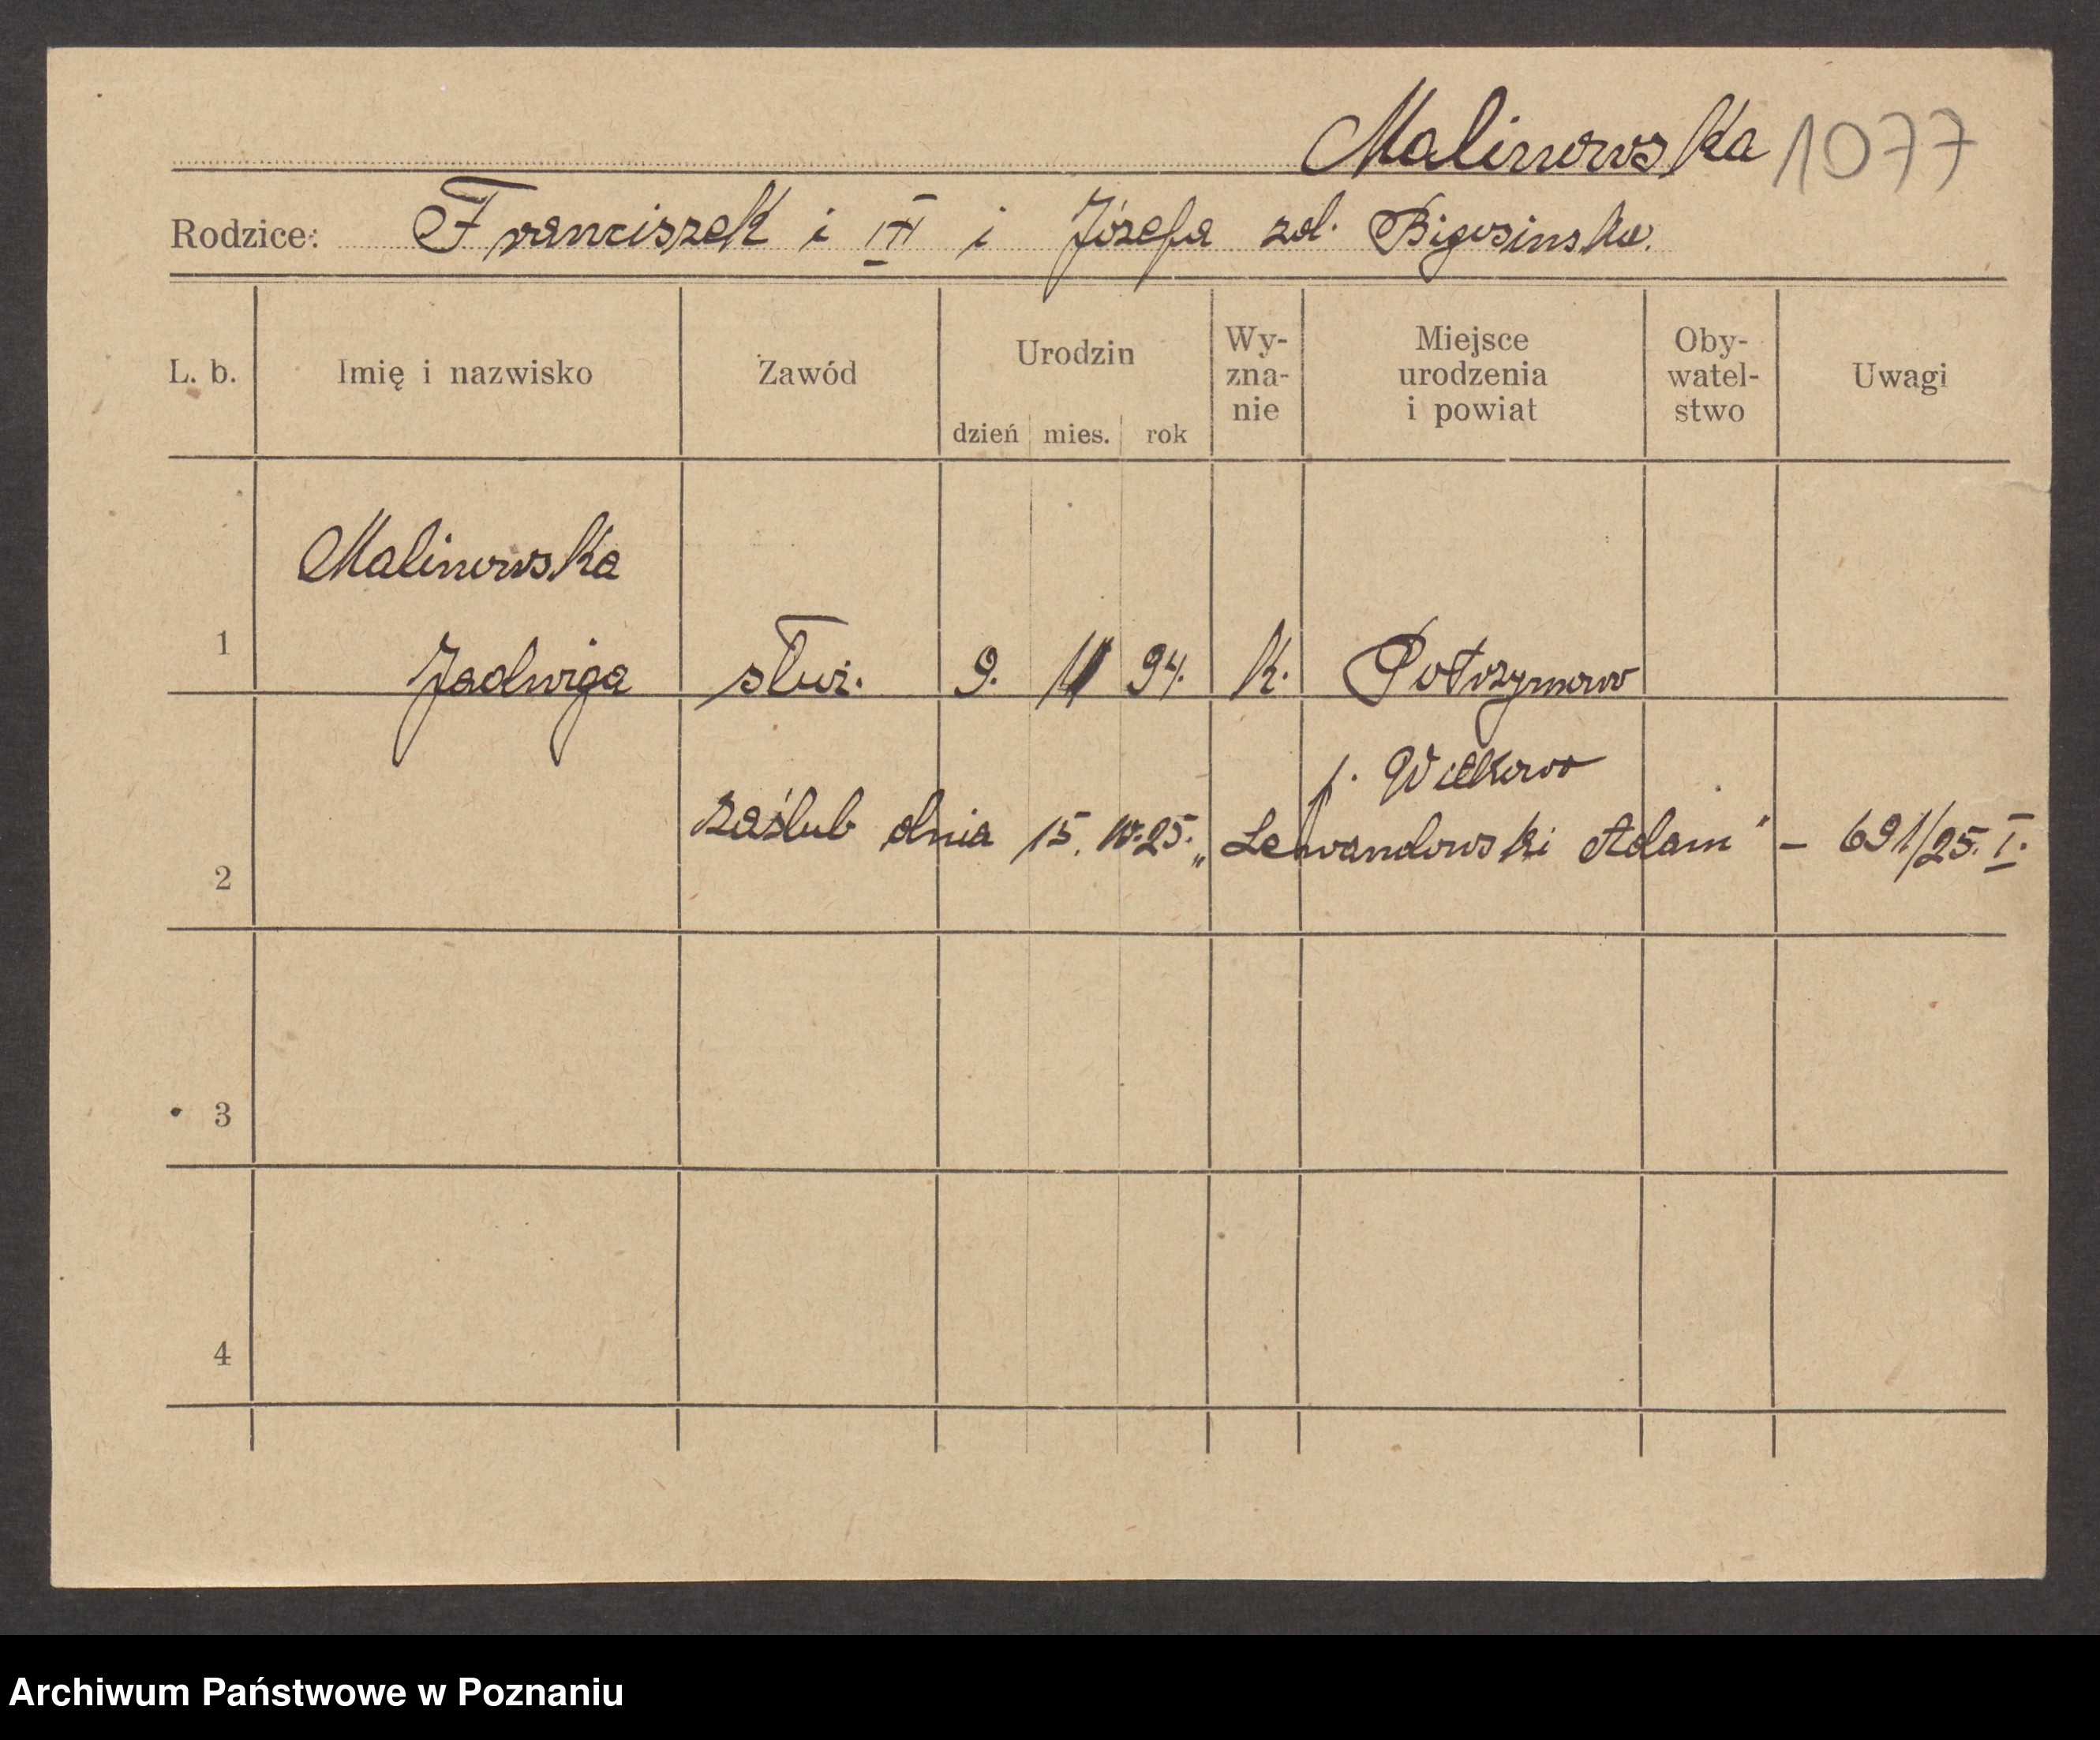 Malinowska 1077
Rodzice: Franciszek i III i Józefa zd. Bigosinska.
L. b. Imię i nazwisko Zawód Urodzin dzień mies. rok Wy-zna-nie Miejsce urodzenia i powiat Oby-watel-stwo Uwagi
Malinowska
1 Jadwiga służ. 9. 94. k. Potrzymowo
p. Witkowo
2 zaślub dnia 15. 10. 25. „Lewandowski Adam" - 691/25. I.
3
4
Archiwum Państwowe w Poznaniu